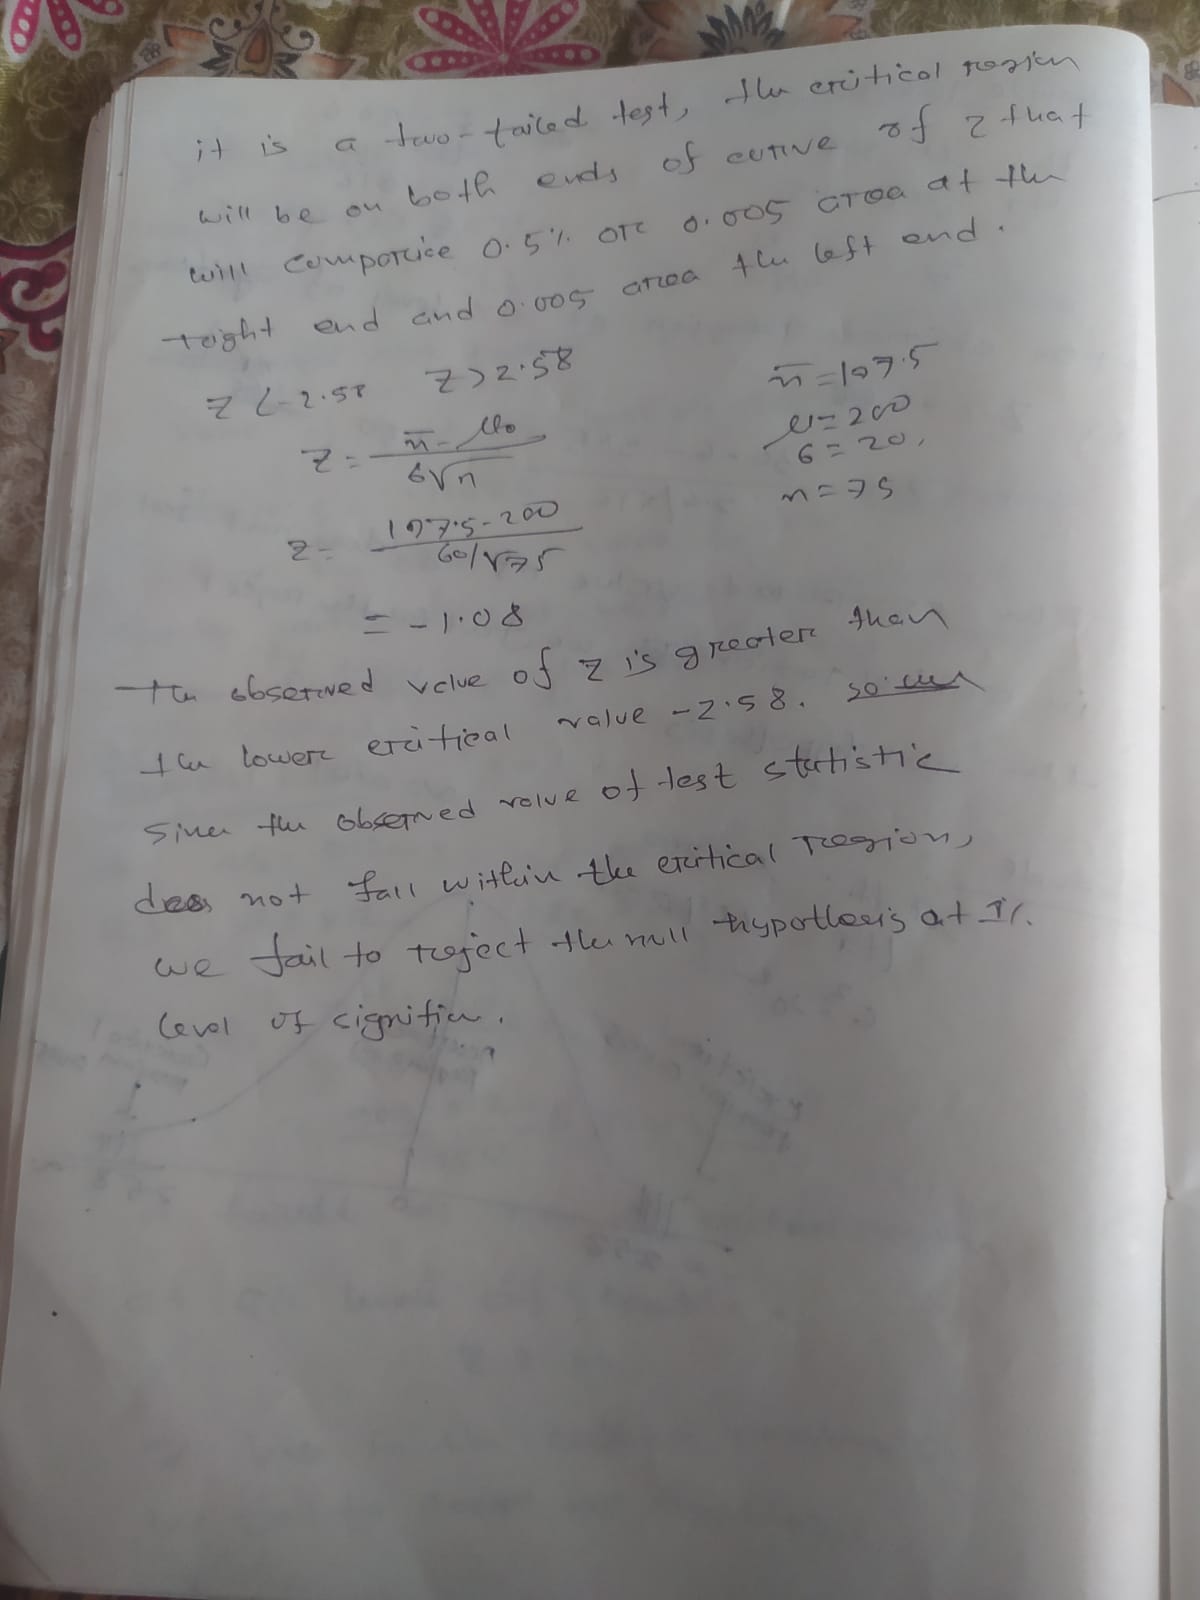 it is a two-tailed test, the critical region
will be on both ends of curve of z that
will comprise 0.5% or 0.005 area at the
right end and 0.005 area the left end.
Z < -2.58 Z > 2.58
x̄ = 197.5
μ = 200
σ = 20,
n = 75
Z = x̄ - μ₀ / σ√n
Z = 197.5 - 200 / 20/√75
= -1.08
The observed value of z is greater than
the lower critical value -2.58. so
Since the observed value of test statistic
does not fall within the critical region,
we fail to reject the null hypothesis at 1%
level of